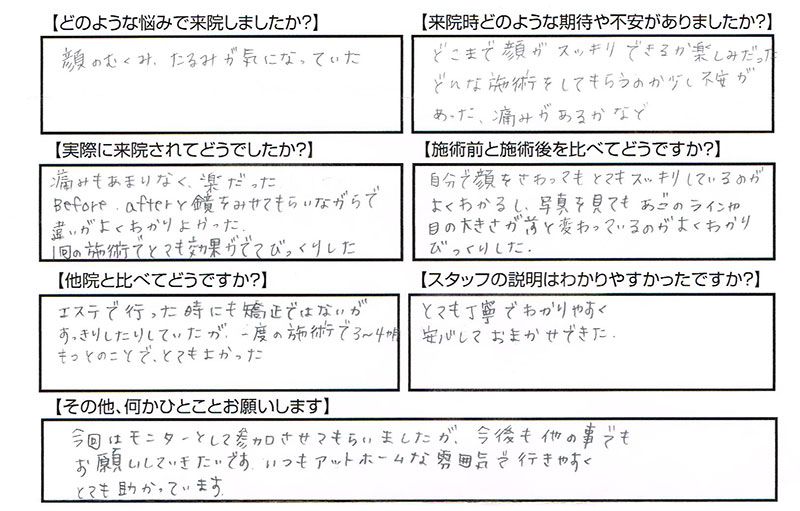 【どのような悩みで来院しましたか?】
顔のむくみ、たるみが気になっていた
【来院時どのような期待や不安がありましたか?】
どこまで顔がスッキリできるか楽しみだった
どんな施術をしてもらうのか少し不安が
あった、痛みがあるかなど
【実際に来院されてどうでしたか?】
痛みもあまりなく、楽だった
Before、afterと鏡をみせてもらいながらで
違いがよくわかりよかった。
1回の施術でとても効果がでてびっくりした
【施術前と施術後を比べてどうですか?】
自分で顔をさわってもとてもスッキリしているのが
よくわかるし、写真を見てもあごのラインや
目の大きさが前と変わっているのがよくわかり
びっくりした.
【他院と比べてどうですか?】
エステで行った時にも矯正ではないが
すっきりしたりしていたが、一度の施術で3〜4ヵ月
もつとのことで、とてもよかった
【スタッフの説明はわかりやすかったですか?】
とても丁寧でわかりやすく
安心しておまかせできた.
【その他、何かひとことお願いします】
今回はモニターとして参加させてもらいましたが、今後も他の事でも
お願いしていきたいです.いつもアットホームな雰囲気で行きやすく
とても助かっています.